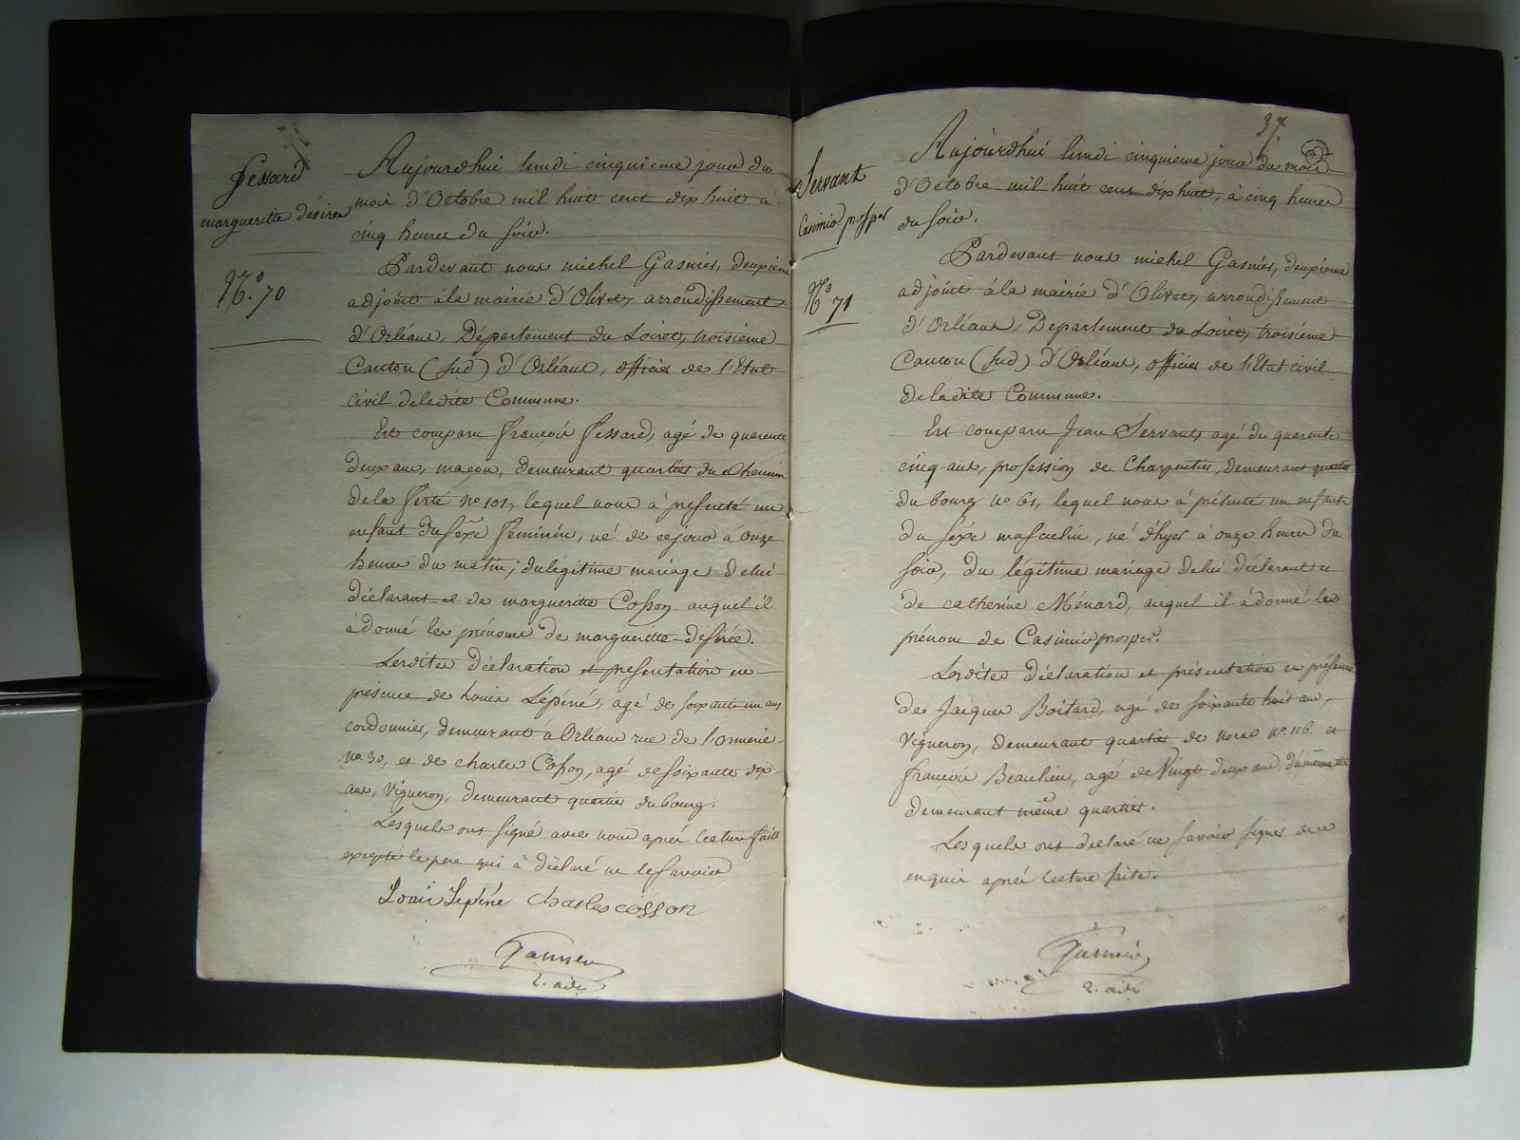 Fessard
marguerite désirée
N.o 70
Aujourdhui lundi cinquieme jour du
mois d'Octobre mil huit cent dix huit à
cinq heures du soir.
Pardevant nous michel Gasnier, deuxieme
adjoint à la mairie d'Olivet, arrondissement
d'Orléans, Département du Loiret, troisieme
Canton (sud) d'Orléans, officier de l'Etat
civil de ladite Commune.
Est comparu françois fessard, agé de quarente
deux ans, maçon, demeurant quartier du Chemin
de la ferté no 101, lequel nous à presenté un
enfant du sexe feminin, né de ce jour à onze
heures du matin, du légitime mariage de lui
déclarant et de marguerite Cosson auquel il
à donné les prénoms de marguerite desirée.
Lesdites déclaration et presentation en
présence de Louis Lépine, agé de soixante un ans
cordonnier, demeurant à Orléans rue de l'ormerie
no 30, et de charles Cosson, agé de soixante dix
ans, Vigneron, demeurant quartier du bourg.
Lesquels ont signé avec nous après lecture faite
excepté le pere qui à déclaré ne le savoir
Louis Lépine charles cosson
Gasnier
2. adj
37
Servant
Casimir prosper
N.o 71
Aujourdhui lundi cinquieme jour du mois
d'Octobre mil huit cent dix huit, à cinq heures
du soir.
Pardevant nous michel Gasnier, deuxieme
adjoint à la mairie d'Olivet, arrondissement
d'Orléans, Departement du Loiret, troisieme
Canton (sud) d'Orléans, officier de l'Etat civil
de ladite Commune.
Est comparu Jean Servant, agé de quarente
cinq ans, profession de Charpentier, demeurant quartier
du bourg no 61, lequel nous à présenté un enfant
du sexe masculin, né d'hyer à onze heures du
soir, du légitime mariage de lui déclarant et
de catherine Ménard, auquel il à donné les
prénom de Casimir prosper.
Lesdites déclaration et présentation en présence
de Jacques Boitard, agé de soixante huit ans,
Vigneron, demeurant quartier de no 116. et
françois Beaulieu, agé de Vingt deux ans, du même
demeurant même quartier.
Lesquels ont déclaré ne savoir signer de ce
enquis après lecture faite.
Gasnier
2. adj